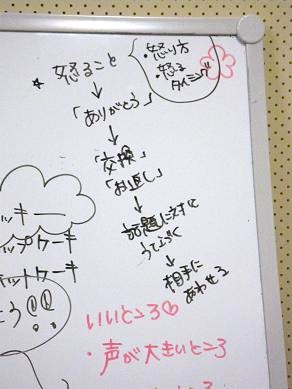 * 怒ること
・怒り方
・怒る
タイミング
↓
「ありがとう」
↓
「交換」
「お返し」
↓
話題に対して
↓
相手に
あわせる
ッキー
ップケーキ
ットケーキ
いいところ♡
・声が大きいところ